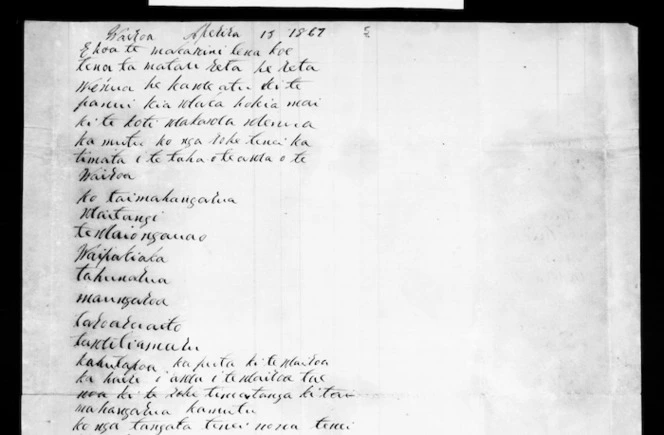 Wairoa Aperira 15 1867
E hoa te makarini tena koe
tena ta matau reta he reta
wenua he karere atu ki te
panui kia waea hokia mai
ki te koti whakawa wenua
ka mutu ko nga rohe tenei ka
timata i te taha o te awa o te
Wairoa
ko taimahangarua
Waitangi
te
Waipatiata
tahunarua
maungaroa
taroaraiato
kahutapoa ka puta ki te Wairoa
ka haere i awa i te Wairoa tae
noa ki te rohe timatanga ki tai
mahangarua kamutu
ko nga tangata tenei nona tenei